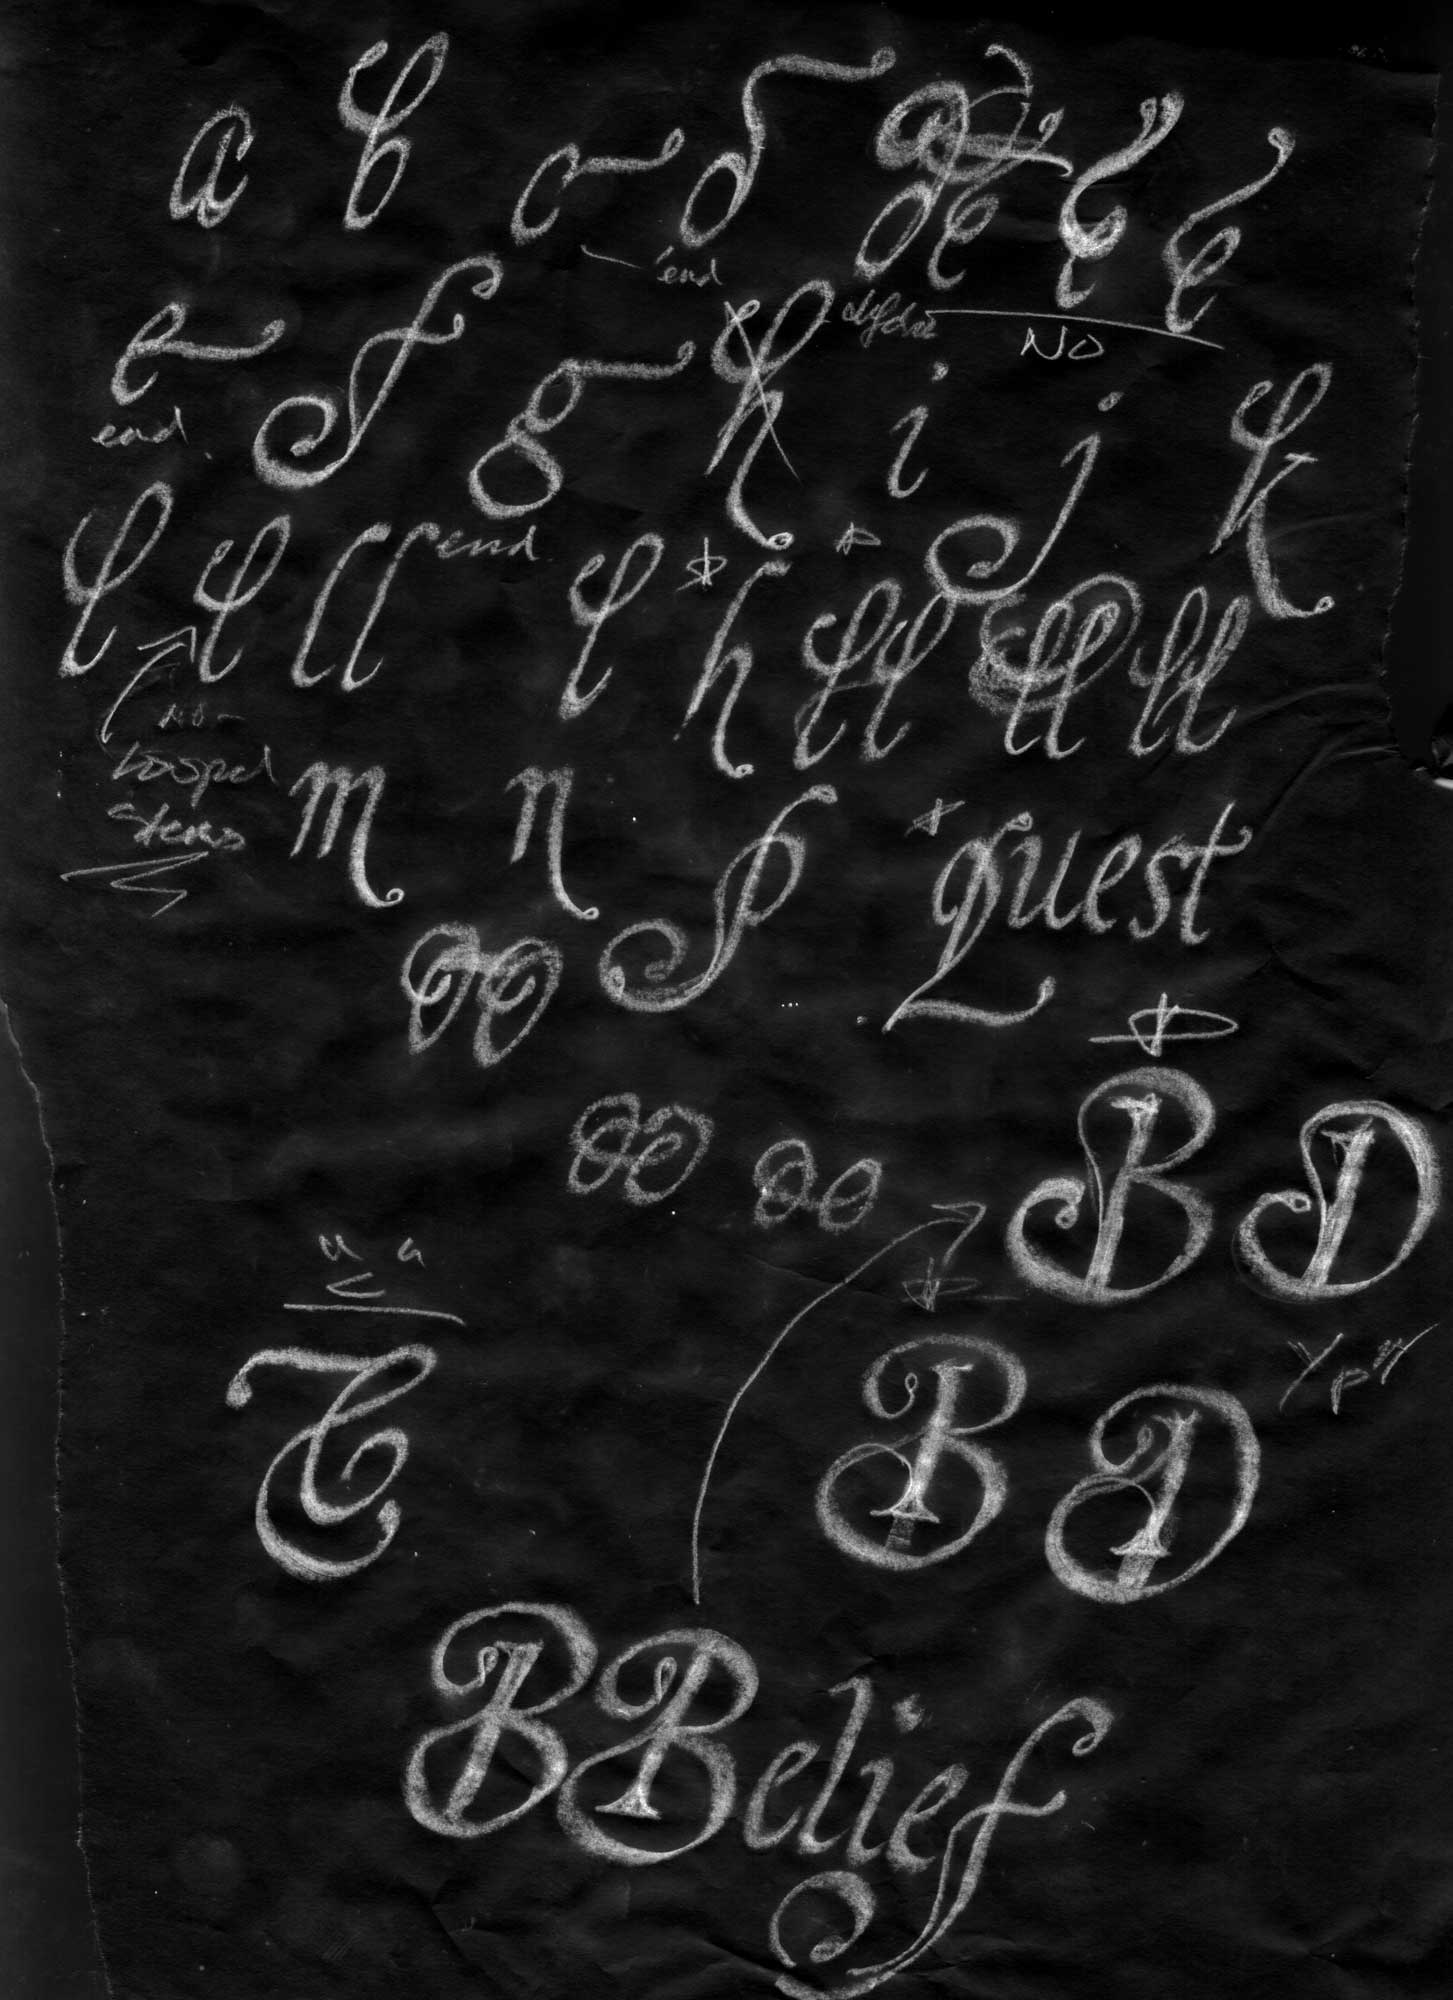 a b c d de e e
end
NO
e f g h i j k
end
l l ll end l h ll ll ll
no
Looped
Stems
m n p quest
oo
oo oo B D
u a
c
T B D
B Belief